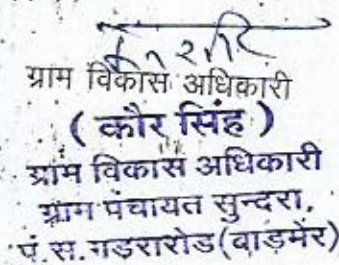 ग्राम विकास अधिकारी
( कौर सिंह )
ग्राम विकास अधिकारी
ग्राम पंचायत सुन्दरा,
पं.स.गडरारोड(बाड़मेर)